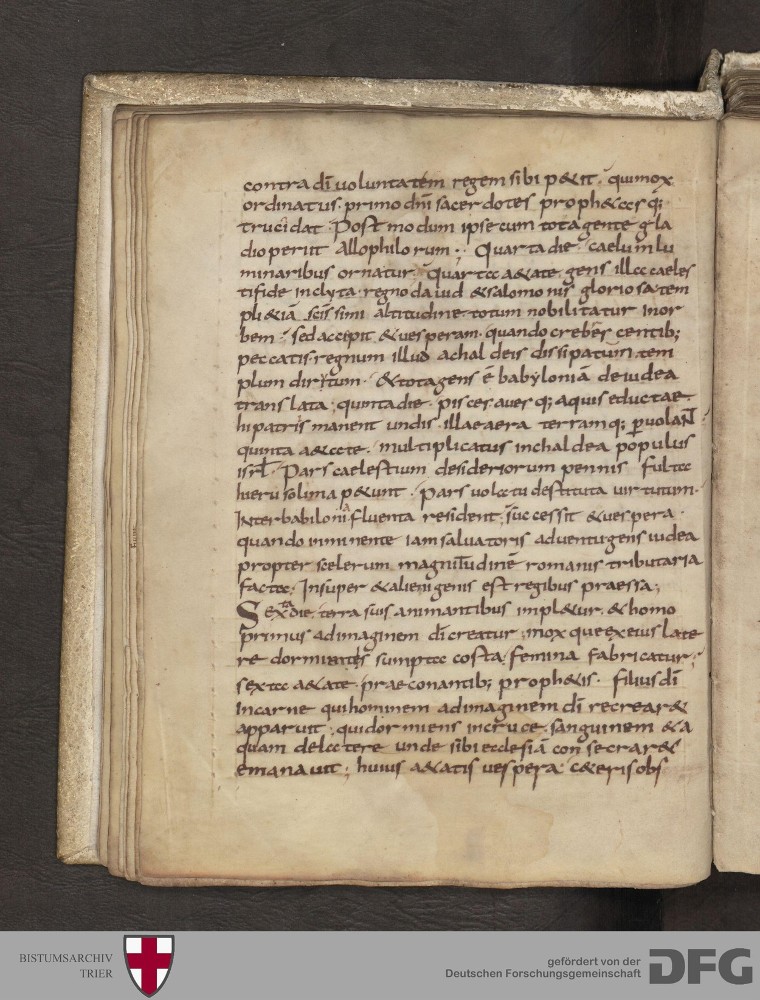 contra dī uoluntatem regem sibi p&iit. quimox
ordinatus. primo dn̄i sacerdotes proph&asq;
trucidat. Post modum ipse cum tota gente gla
dio periit allophilorum; Quarta die caelum lu
minaribus ornatur. Quarta a&ate. gens illa caeles
ti fide inclyta. regno dauid & salomonis glorio sa. tem
pli &iā scīssimi altitudine totum nobilitatur inor
bem; sed accipit & uesperam. quando crebēr centib;
peccatis. regnum illud a chaldeis dissipatum. tem
plum dirutum. & tota gens ē babyloniā de iudea
translata; quinta die. pisces aues q; aquis eductae.
hi patriis manent undis. illae aera terram q; puolaNT;
quinta a&ate. multiplicatus in chaldea populus
isrl. Pars caelestium desideriorum pennis fulta
hierusolima p&unt. Pars uolatu destituta uirtutum.
Inter babiloniȩ fluenta resident; successit & uespera.
quando imminente iam saluatoris aduentu gens iudea
propter scelerum magnitudinē romanis tributaria
facta; Insuper & alienigenis est regibus praessa;
Sexta die. terra suis animantibus impl&ur. & homo
primus ad imaginem dī creatur; mox que ex eius late
re dormientis sumpta costa. femina fabricatur;
sexta a&ate. praeconantib; proph&is. filius dī
in carne qui hominem ad imaginem dī recrear&
apparuit; qui dormiens in cruce. sanguinem & a
quam de latere unde sibi ecclesiā consecrar&
emanauit; huius a&atis uespera. c&eris obs
BISTUMSARCHIV
TRIER
gefördert von der
Deutschen Forschungsgemeinschaft
DFG